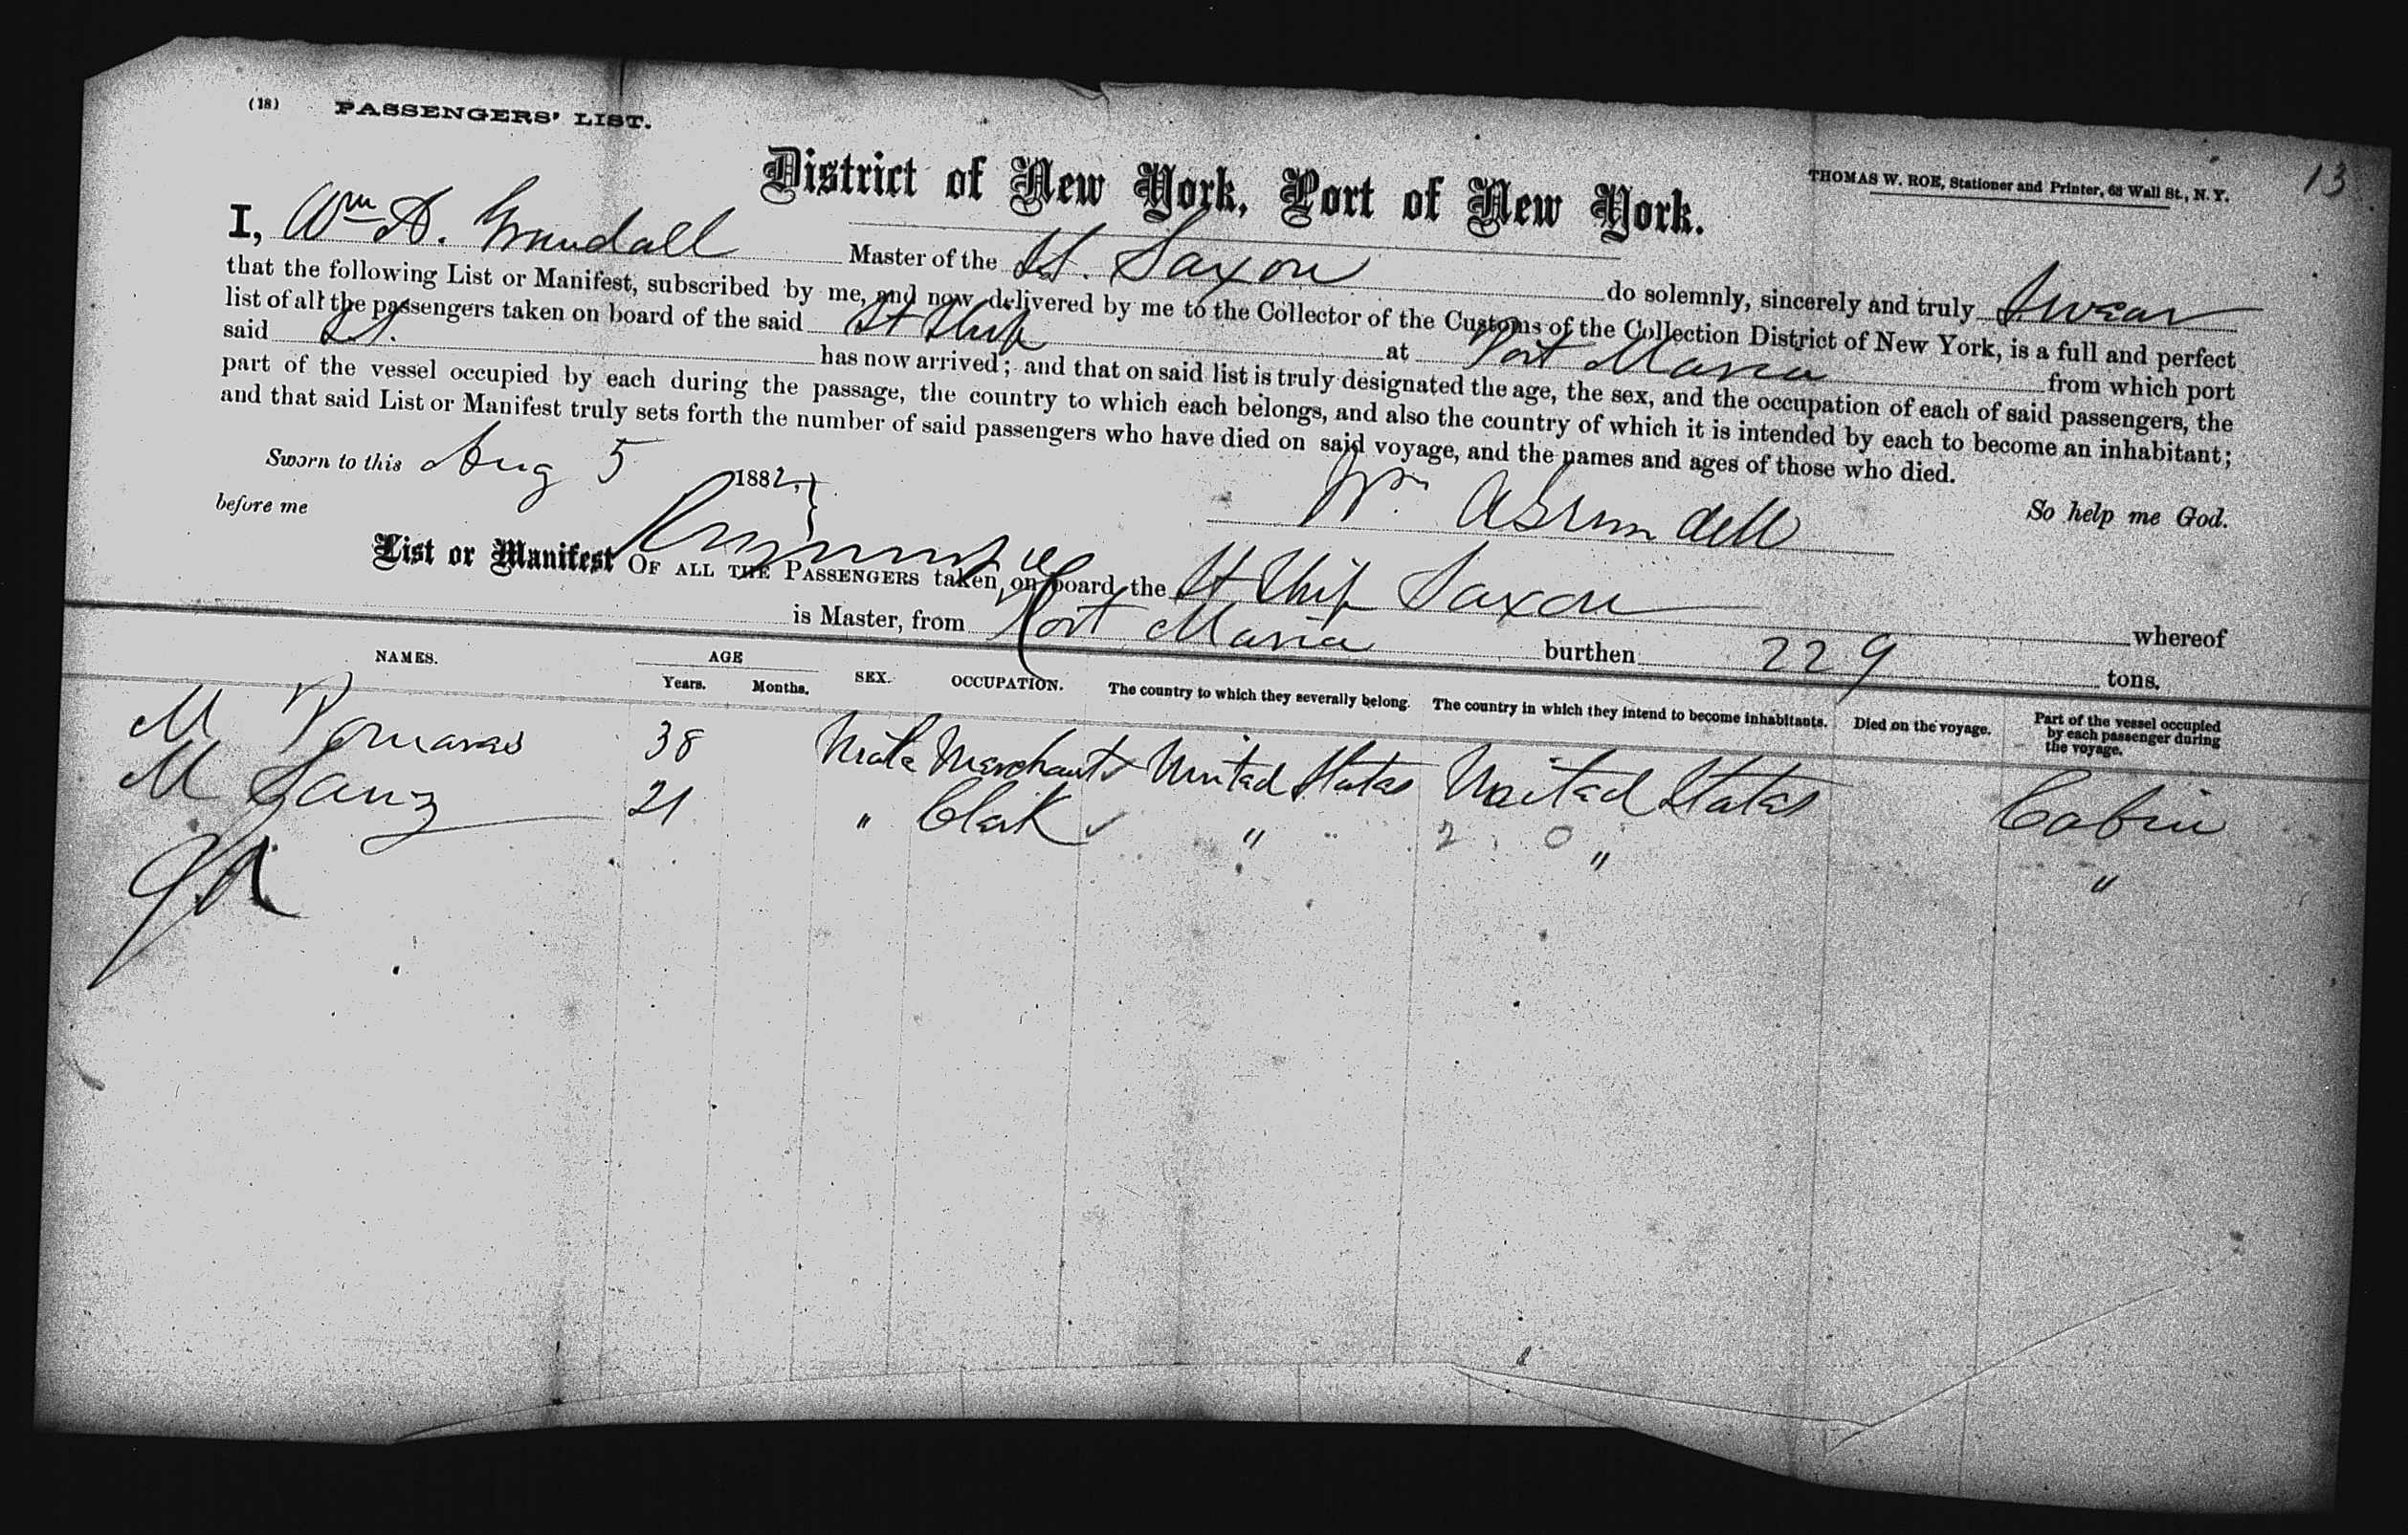 (18) PASSENGERS' LIST.
13
THOMAS W. ROE, Stationer and Printer, 68 Wall St., N. Y.
District of New York, Port of New York.
I, Wm A. Grundell Master of the SS. Saxon do solemnly, sincerely and truly Swear
that the following List or Manifest, subscribed by me, and now delivered by me to the Collector of the Customs of the Collection District of New York, is a full and perfect
list of all the passengers taken on board of the said St Ship at Port Maria from which port
said SS. has now arrived; and that on said list is truly designated the age, the sex, and the occupation of each of said passengers, the
part of the vessel occupied by each during the passage, the country to which each belongs, and also the country of which it is intended by each to become an inhabitant;
and that said List or Manifest truly sets forth the number of said passengers who have died on said voyage, and the names and ages of those who died.
Sworn to this Aug 5 1882, So help me God.
before me Wm
List or Manifest OF ALL THE PASSENGERS taken on board the St Ship Saxon whereof
is Master, from Port Maria burthen 229 tons.
NAMES. AGE SEX. OCCUPATION. The country to which they severally belong. The country in which they intend to become inhabitants. Died on the voyage. Part of the vessel occupied by each passenger during the voyage.
Years. Months.
M Pomares 38 Male Merchant United States United States Cabin
M Sanz 21 " Clerk " " "
2 0